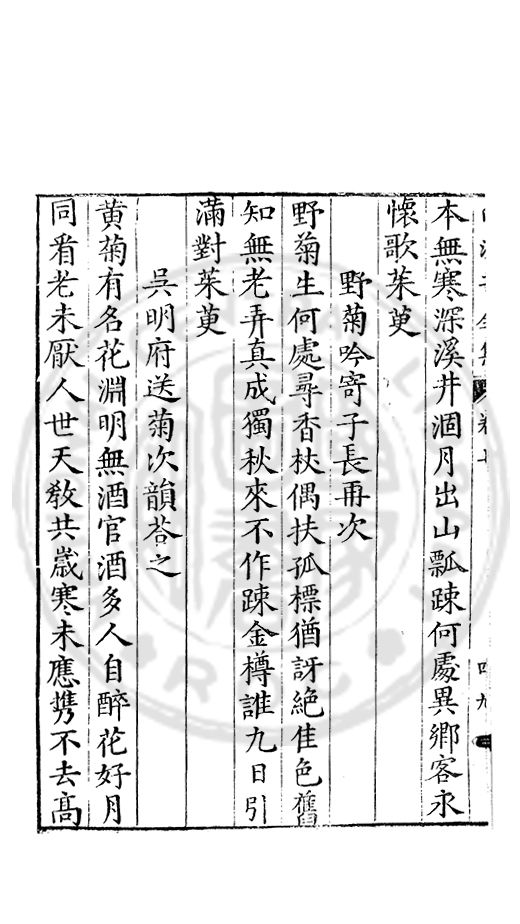 本無寒深溪井涸月出山瓢踈何處異鄉客永
懷歌茱萸
野菊吟寄子長再次
野菊生何處尋香杖偶扶孤標猶訝絶佳色舊
知無老弄真成獨秋來不作踈金樽誰九日引
滿對茱萸
吳明府送菊次韻荅之
黄菊有名花淵明無酒官酒多人自醉花好月
同看老未厭人世天敎共歲寒未應携不去髙